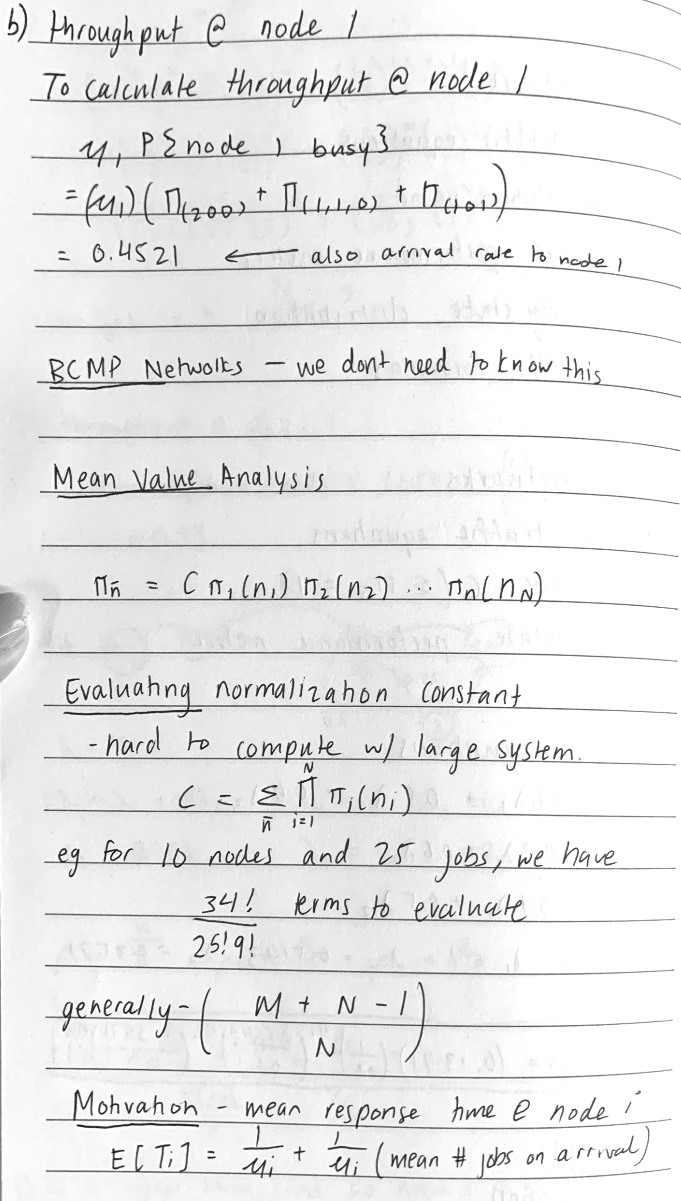 b) throughput @ node 1
To calculate throughput @ node 1
μ₁ P{node 1 busy}
= (μ₁)(Π(200) + Π(1,1,0) + Π(101))
= 0.4521 ← also arrival rate to node 1
BCMP Networks – we dont need to know this
Mean Value Analysis
πn̄ = C π₁(n₁) π₂(n₂) ... πn(nN)
Evaluating normalization constant
- hard to compute w/ large system.
C = Σn̄ ∏i=1^N πi(ni)
eg for 10 nodes and 25 jobs, we have
34! / 25!9! terms to evaluate
generally - (M + N - 1 / N)
Motivation - mean response time @ node i
E[Ti] = 1/μi + 1/μi (mean # jobs on arrival)